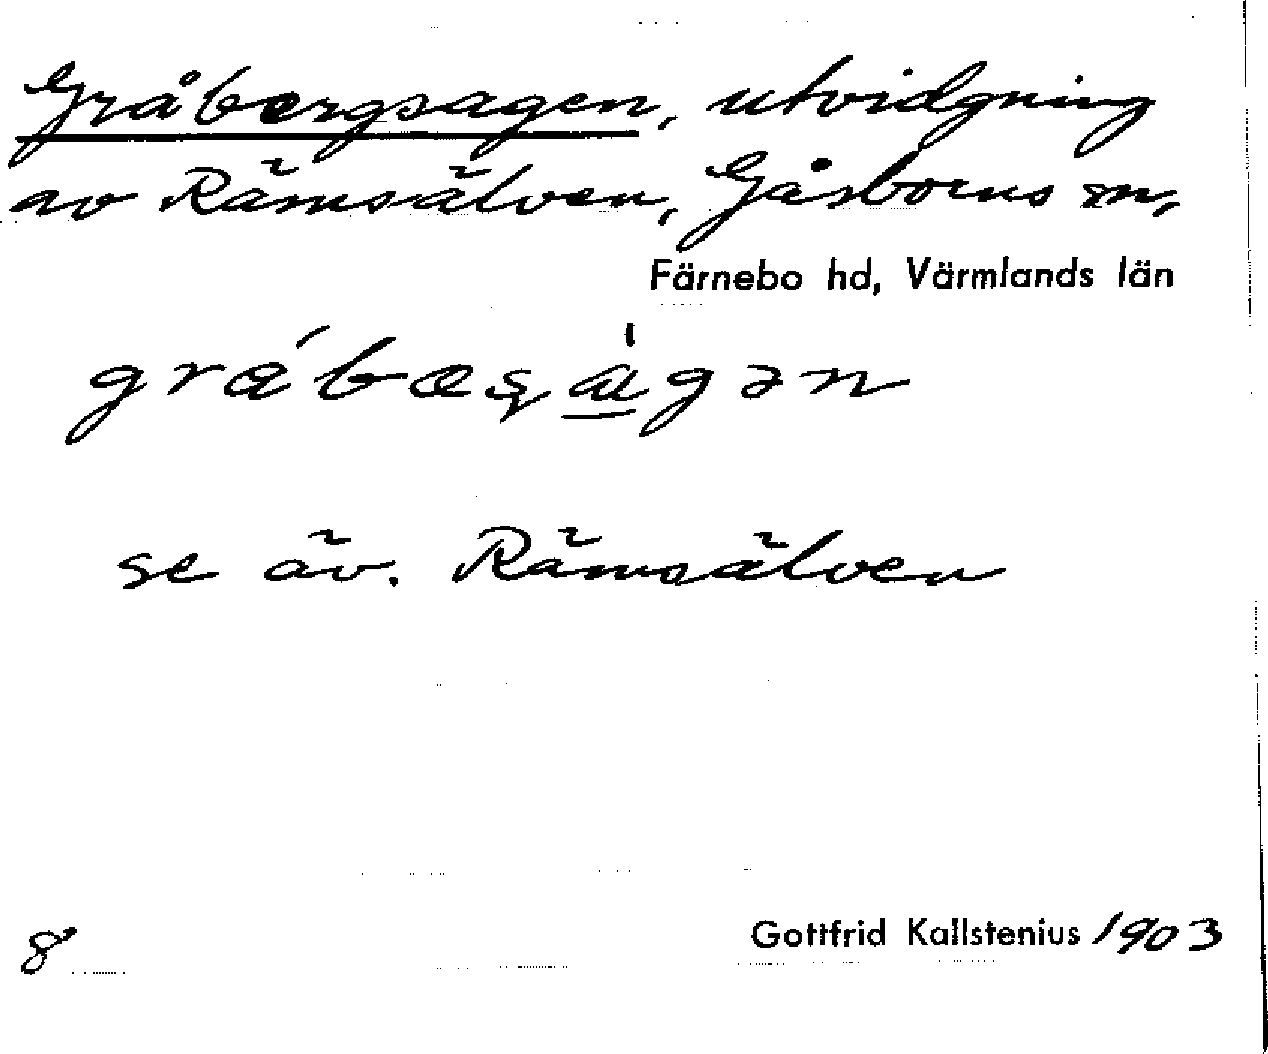 Gråbergsagen, utvidgning
av Rämsälven, Gåsborns sn,
Färnebo hd, Värmlands län
se äv. Rämsälven
8
Gottfrid Kallstenius 1903